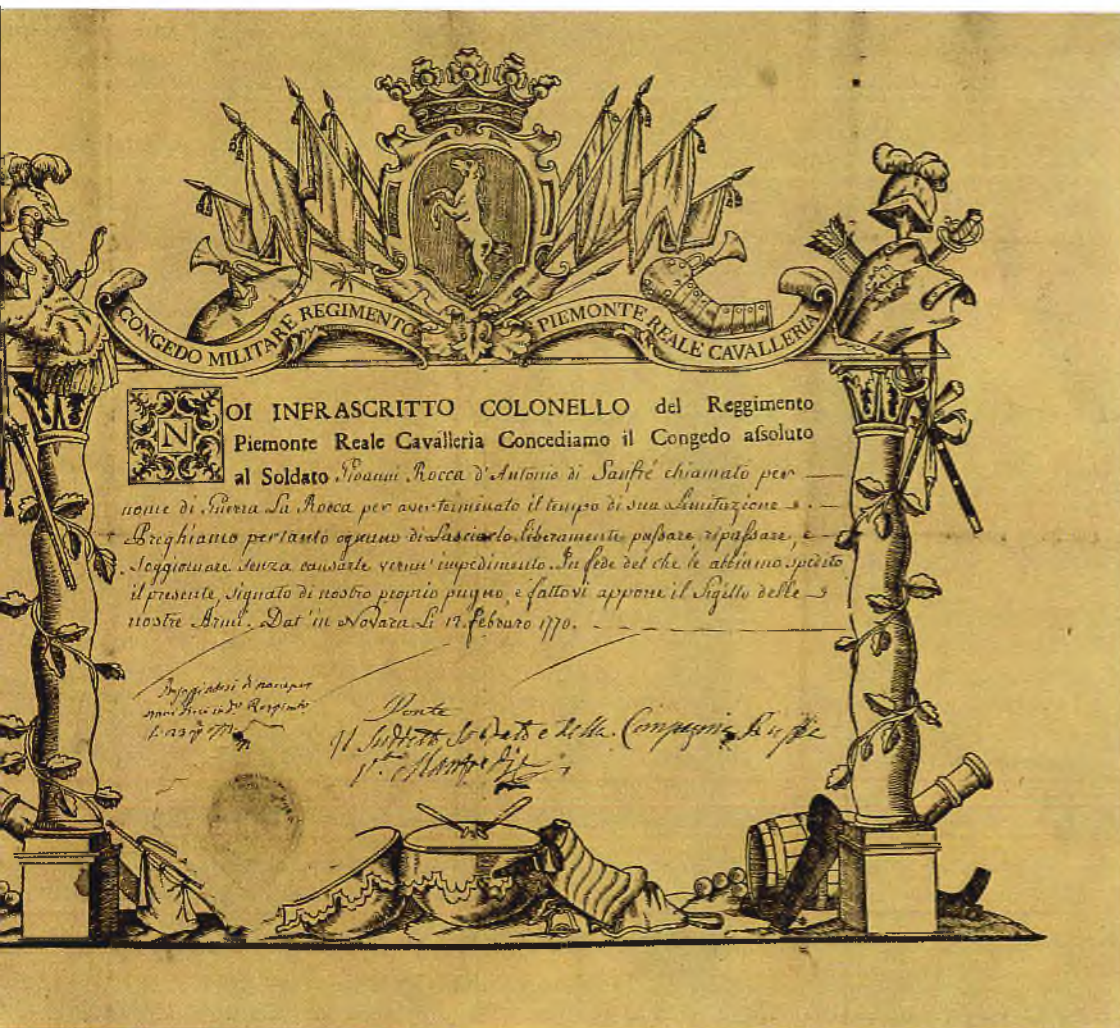 CONGEDO MILITARE REGIMENTO PIEMONTE REALE CAVALLERIA
NOI INFRASCRITTO COLONELLO del Reggimento
Piemonte Reale Cavalleria Concediamo il Congedo aſsoluto
al Soldato Gioanni Rocca d'Antonio di Sanfré chiamato per
nome di Guerra La Rocca per aver terminato il tempo di sua Limitazione
Preghiamo pertanto ognuno di Lasciarlo liberamente paſsare, ripaſsare, e
Soggiornare senza causarle verun' impedimento. In fede del che le abbiamo spedito
il presente, signato di nostro proprio pugno, e fattovi apporre il Sigillo delle
nostre Armi. Dat' in Novara Li 12. Febraro 1770.
Ponte
Il Soldato e della Compagnia